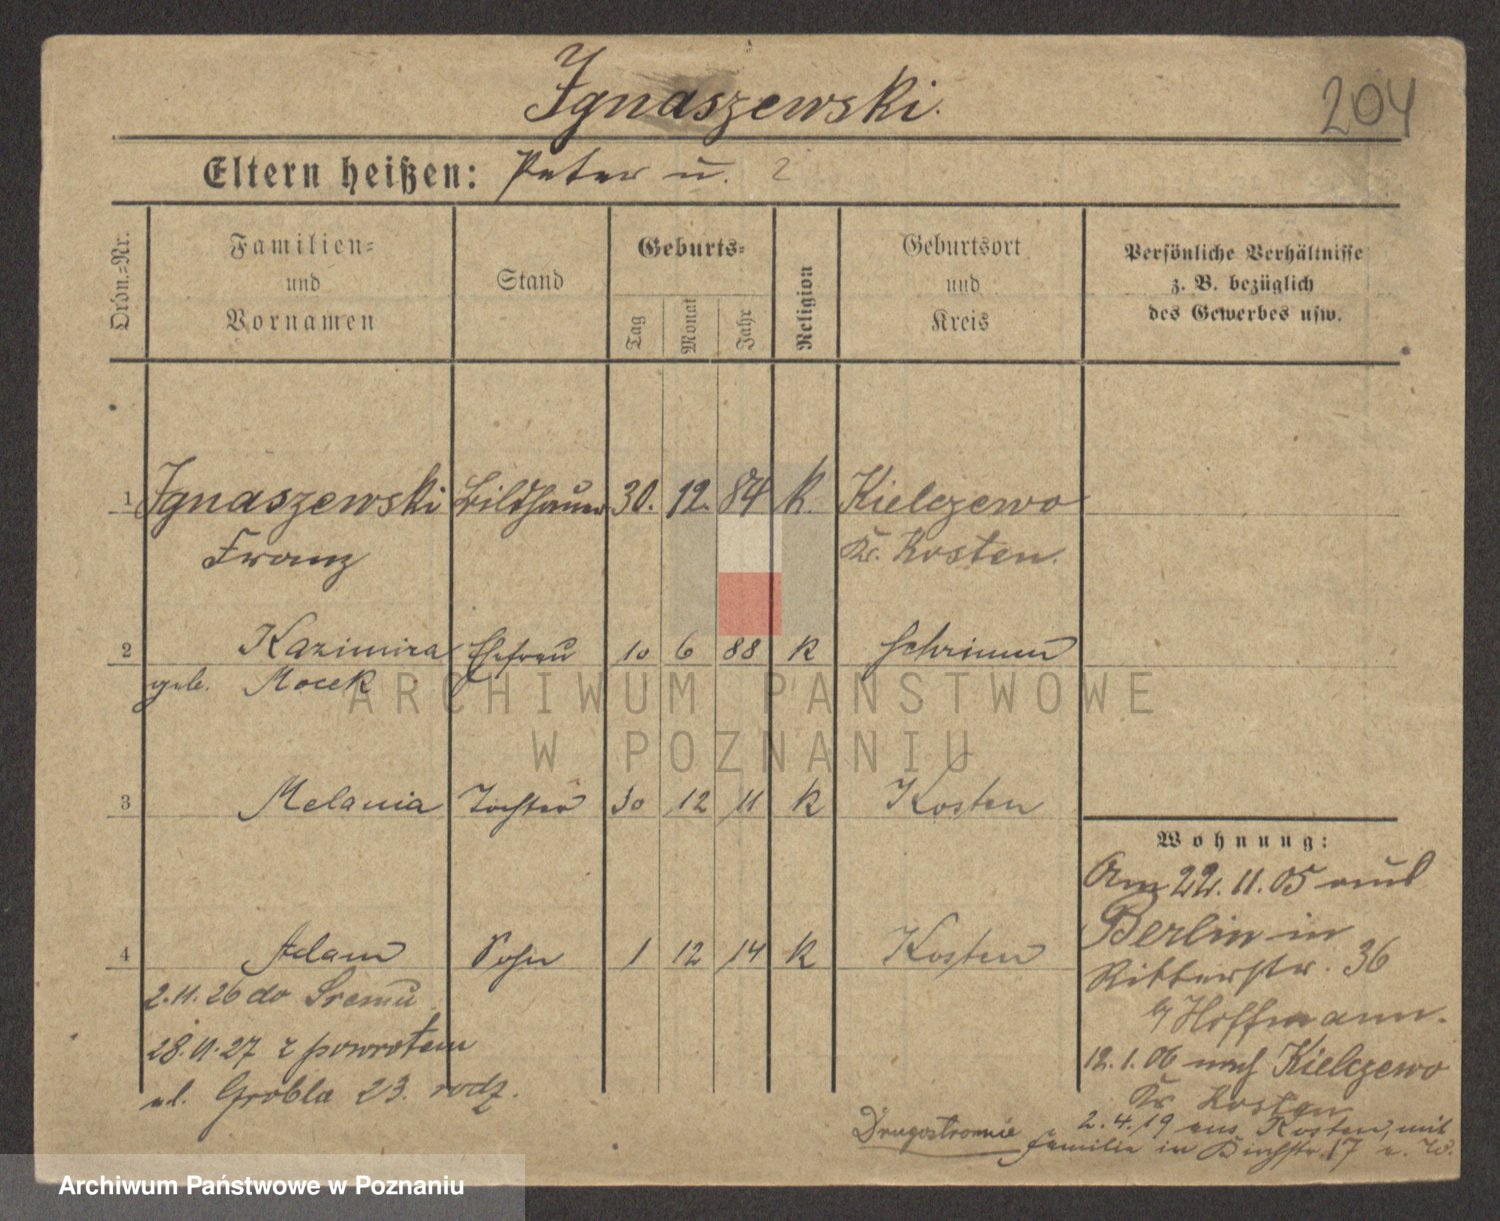 Ignaszewski.
204
Eltern heißen: Peter u. ?
Ordn.-Nr.
Familien-
und
Vornamen
Stand
Geburts-
Tag
Monat
Jahr
Religion
Geburtsort
und
Kreis
Persönliche Verhältnisse
z. B. bezüglich
des Gewerbes usw.
1 Ignaszewski Bildhauer 30. 12. 84 K. Kielczewo
Franz Kr. Kosten.
2 Kazimira Ehefrau 10 6 88 K Schrimm
geb. Mocek
3 Melania Tochter 30 12 11 K Kosten
4 Adam Sohn 1 12 14 K Kosten
2.11.26 do Śremu
28.11.27 z powrotem
ul. Grobla 23. rodz.
Wohnung:
Am 22.11.05 aus
Berlin in
Ritterstr. 36
b/ Hoffmann.
12.1.06 nach Kielczewo
Kr Kosten
2.4.19 aus Kosten, mit
Familie in 17
Drugostronnie
ARCHIWUM PAŃSTWOWE
W POZNANIU
Archiwum Państwowe w Poznaniu